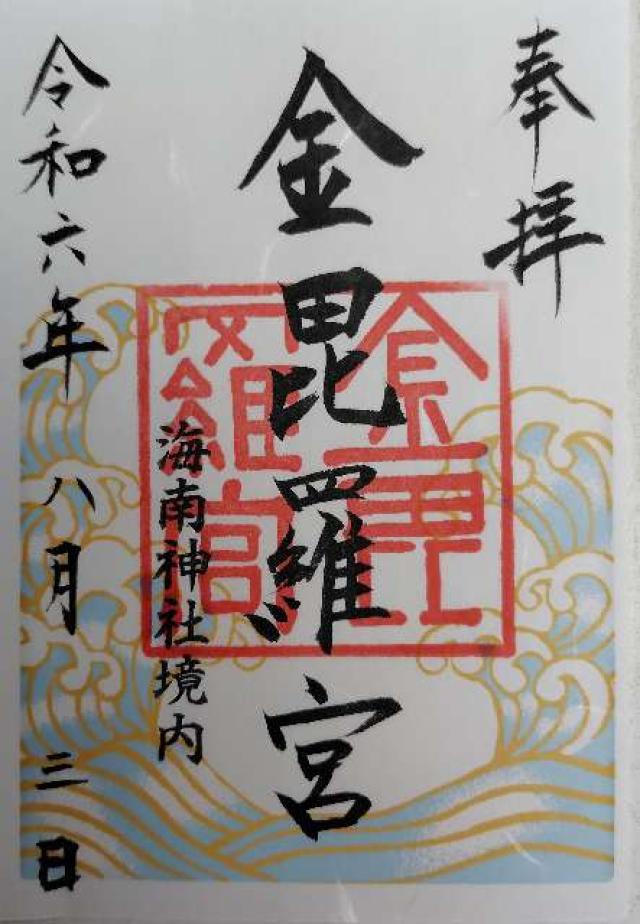 奉拝
金毘羅宮
金毘羅宮
海南神社境内
令和六年八月三日